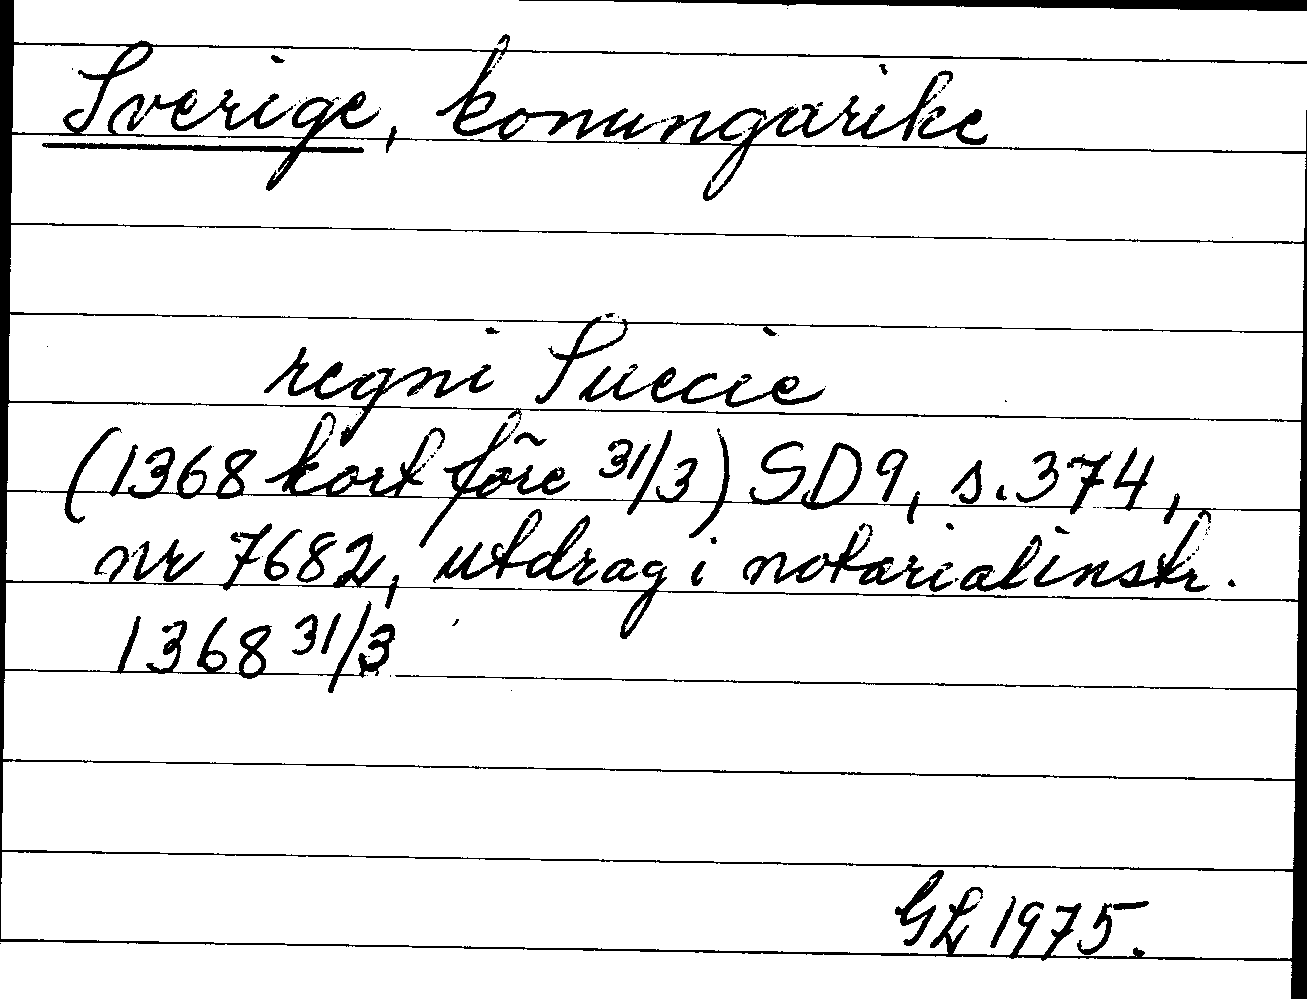 Sverige, konungarike
regni Suecie
(1368 kort före 31/3) SD9, s. 374,
nr 7682, utdrag i notarialinstr.
1368 31/3
GL 1975.